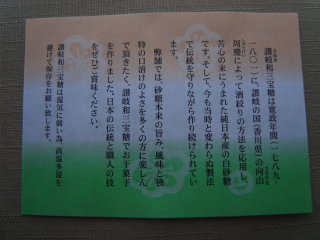 讃岐和三宝糖は寛政年間(一七八九~
一八〇一)に、讃岐の国(香川県)の向山
周慶によって酒絞りの方法を応用し、
苦心の末にうまれた純日本産の白砂糖
です。そして、今も当時と変わらぬ製法
で伝統を守りながら作り続けられてい
ます。
弊舗では、砂糖本来の旨み、風味と独
特の口溶けのよさを多くの方に楽しん
で頂きたく、讃岐和三宝糖でお干菓子
を作りました。日本の伝統と職人の技
をぜひご賞味ください。
讃岐和三宝糖は湿気に弱い為、高温多湿を
避けて保存をお願い致します。